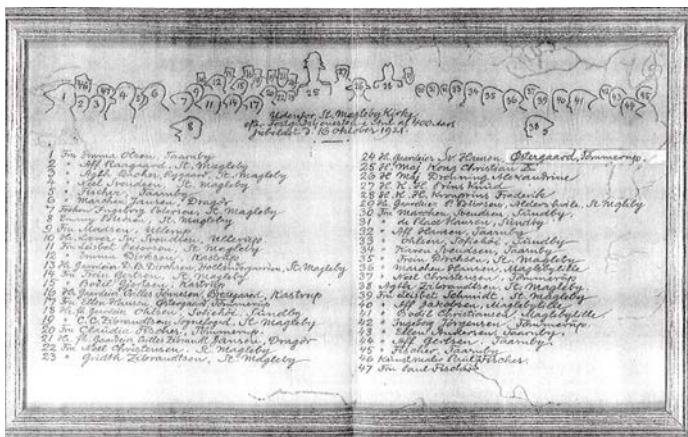 Udenfor St. Magleby Kirke
efter Festgudstjenesten i Anl. af 400 Aars
Jubelæet d. 16 Oktober 1921.
1 Frk Emma Olsen, Taarnby
2 " Aff Raagaard, St. Magleby
3 " Agth Bacher, Rygaard, St. Magleby
4 " Neel Svendsen, St. Magleby
5 " Fischer, Taarnby
6 " Marchen Jansen, Dragör
7 Ingeborg Petersen, St. Magleby
8 Petersen, St. Magleby
9 Fru Madsen, Ullerup
10 Hr. Svendsen, Ullerup
11 Fru Lisbet Petersen, St. Magleby
12 " Emma Dirksen, Kastrup
13 Hr. Gaardejer Dirchsen, Hollændergaarden, St. Magleby
14 Fru Trein St. Magleby
15 " Bodil Gjertsen, Kastrup
16 Hr. Gaardejer Crilles Tönnesen, Bredegaard, Kastrup
17 Fru Ellen Hansen, Östergaard, Tömmerup
18 Hr. Gaardejer Ohlsen, Sofiehöj, Sundby
19 " C. C. Zibrandtsen Sognefoged, St. Magleby
20 Fru Claudie Fischer, Tömmerup
21 Hr. Gaardejer Crilles Zibrandt Jansen, Dragör
22 Fru Neel Christensen, St. Magleby
23 " Gridth Zibrandtsen, St. Magleby
24 Hr. Gaardejer Sv. Hansen, Østergaard, Tömmerup.
25 H. Maj Kong Christian X
26 H. Maj Dronning Alexandrine
27 H. K. H. Prins Knud
28 H. K. H. Kronprins Frederik
29 Hr. Gaardejer P. Petersen, St. Magleby
30 Fru Marchen Svendsen, Sundby
31 " de Place Hansen, Sundby
32 " Aff Hansen, Taarnby
33 " Ohlsen, Sofiehöj, Sundby
34 " Svendsen, Taarnby
35 " Trein Dirchsen, St. Magleby
36 " Maralen Hansen, Maglebylille
37 " Neel Christensen, Tömmerup
38 Agth Zibrandtsen, St. Magleby
39 Fru Leisbet Schmidt, St. Magleby
40 " Aff Jakobsen, Maglebylille
41 " Bodil Christiansen, Maglebylille
42 " Ingeborg Jörgensen, Tömmerup
43 " Ellen Andersen, Taarnby
44 " Aff Gertsen, Taarnby
45 " Fischer, Taarnby
46 Kunstmaler Paul Fischer
47 Fru Paul Fischer